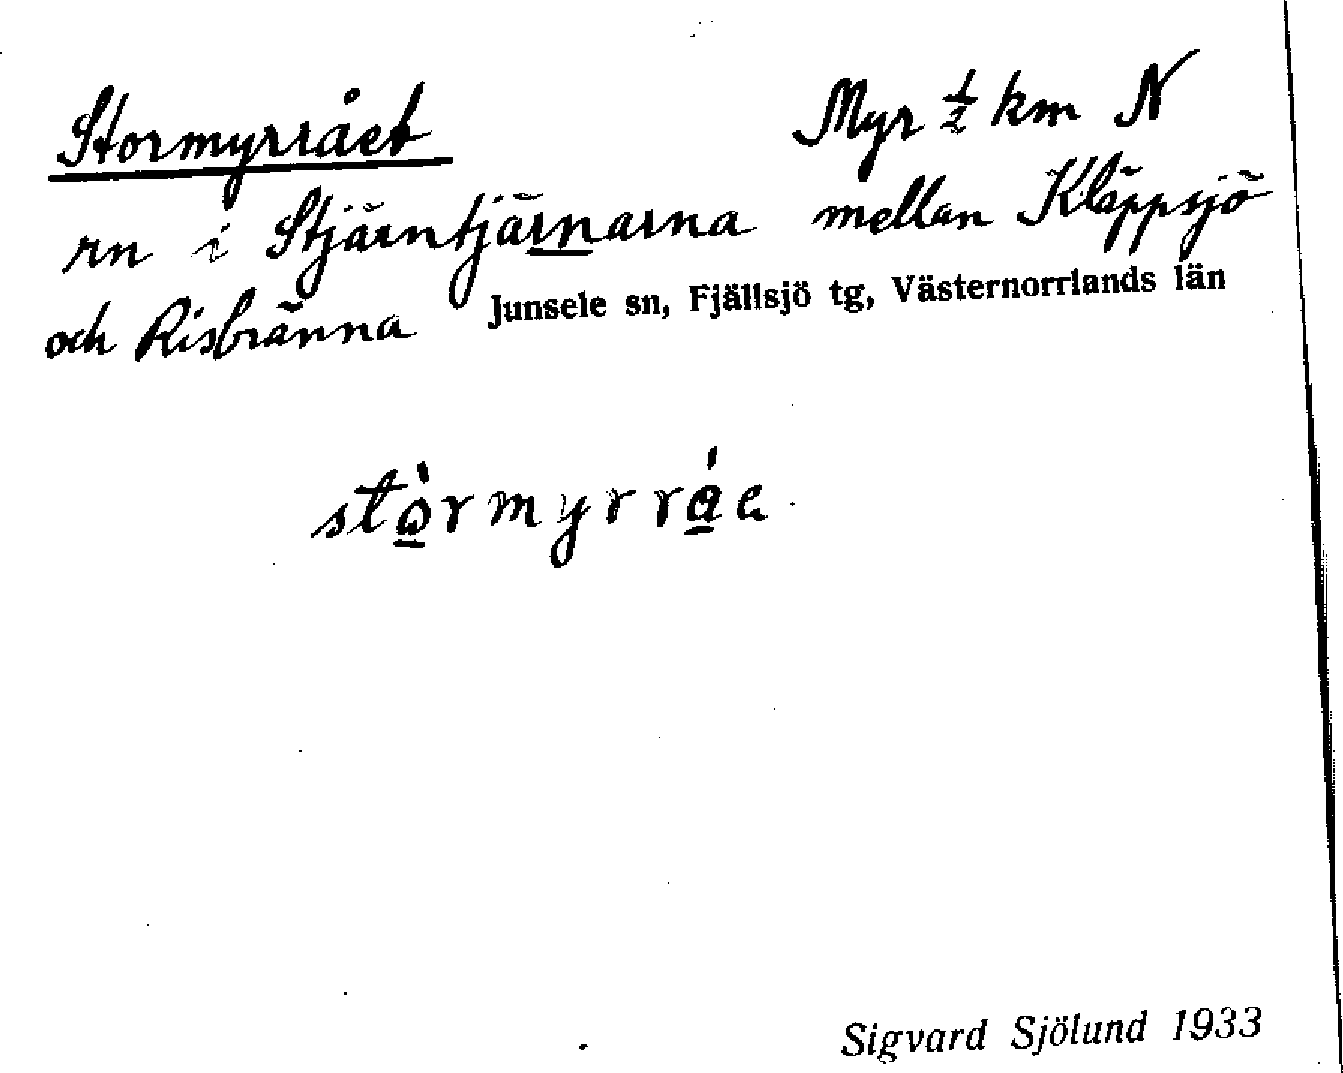 Stormyrrået Myr ½ km N
rn i Stjärntjärnarna mellan Kläppsjö
och Risbränna Junsele sn, Fjällsjö tg, Västernorrlands län
Sigvard Sjölund 1933